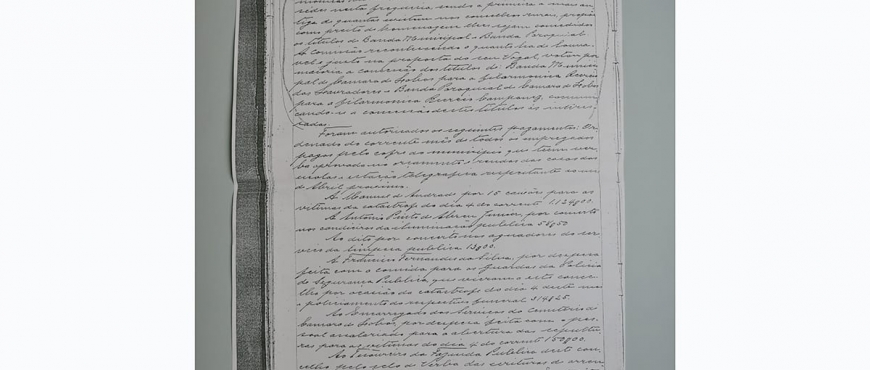 redes nesta freguesia sendo a primeira a mais an-
tiga de quantas existem nos concelhos rurais, propõe
como preito de homenagem lhes sejam concedidos
os titulos de Banda Municipal e Banda Paroquial.
A Comissão reconhecendo o quanto ha de louva-
vel e justo na proposta do seu Vogal, votou por
maioria a concessão dos titulos de Banda Munici-
pal de Camara de Lobos para a filarmonica Recreio
dos Lavradores e Banda Paroquial de Camara de Lobos
para a filarmonica
cando-se a concessão destes titulos ás interes-
sadas.
Foram autorisados os seguintes pagamentos: Or-
denado do corrente mês de todos os empregados
pagos pelo cofre do municipio que teem ver-
ba aprovada no orçamento e rendas das casas das
escolas e estação telegrafica respeitante ao mês
de Abril proximo.
A Manuel de Andrade por 15 caixões para as
vitimas da catastrofe do dia 4 do corrente 1.124$00.
A Antonio Pinto de Abreu Junior, por concerto
nos candieiros da iluminação publica 55$50
Ao dito por concerto nos aguadores do ser-
viço da limpeza publica 13$00.
A Francisco Fernandes da Silva, por despesa
feita com a comida para os Guardas da Policia
de Segurança Publica, que vieram a este conce-
lho por ocasião da catastrofe do dia 4 deste mês
e policiamento do respectivo funeral 314$45.
Ao Encarregado dos Serviços do Cemiterio de
Camara de Lobos por despesa feita com o pes-
soal assalariado para a abertura das sepultu-
ras para as vitimas do dia 4 do corrente 152$00.
Ao Tesoureiro da Fazenda Publica deste con-
celho pelo selo de verba das escrituras de arren-